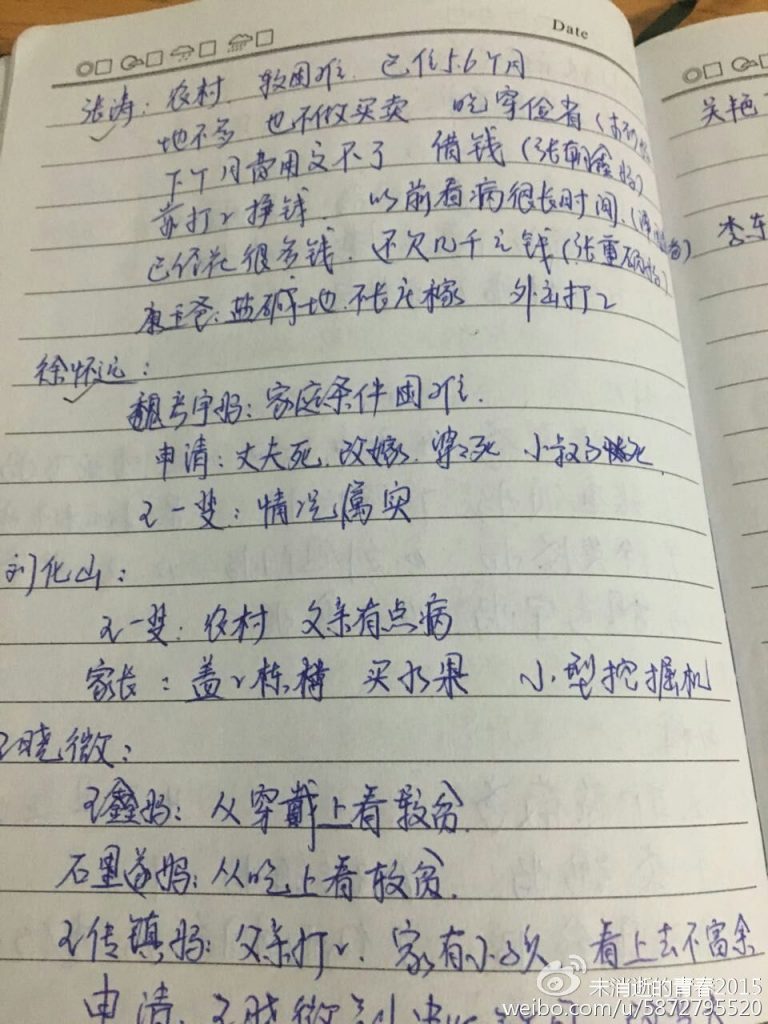 Date
张涛：农村 较困难 已住5.6个月
地不多 也不做买卖 吃穿俭省
下个月费用交不了 借钱（张朝鑫妈）
爸打工挣钱 以前看病很长时间
已经花很多钱，还欠几千元钱（张重硕妈）
康玉爸：盐碱地 不长庄稼 外出打工
徐怀远：
魏考宇妈：家庭条件困难．
申请：丈夫死，改嫁，婆死 小叔子
王一斐：情况属实
刘化山：
王一斐：农村 父亲有点病
家长：盖 栋楼 买水果 小型挖掘机
王晓微：
王鑫妈：从穿戴上看较贫．
石 妈：从吃上看较贫．
王传镇妈：父亲打工．家有小 看上去不富余
申请 王晓微
关艳
李东
未消逝的青春2015
weibo.com/u/5872795520